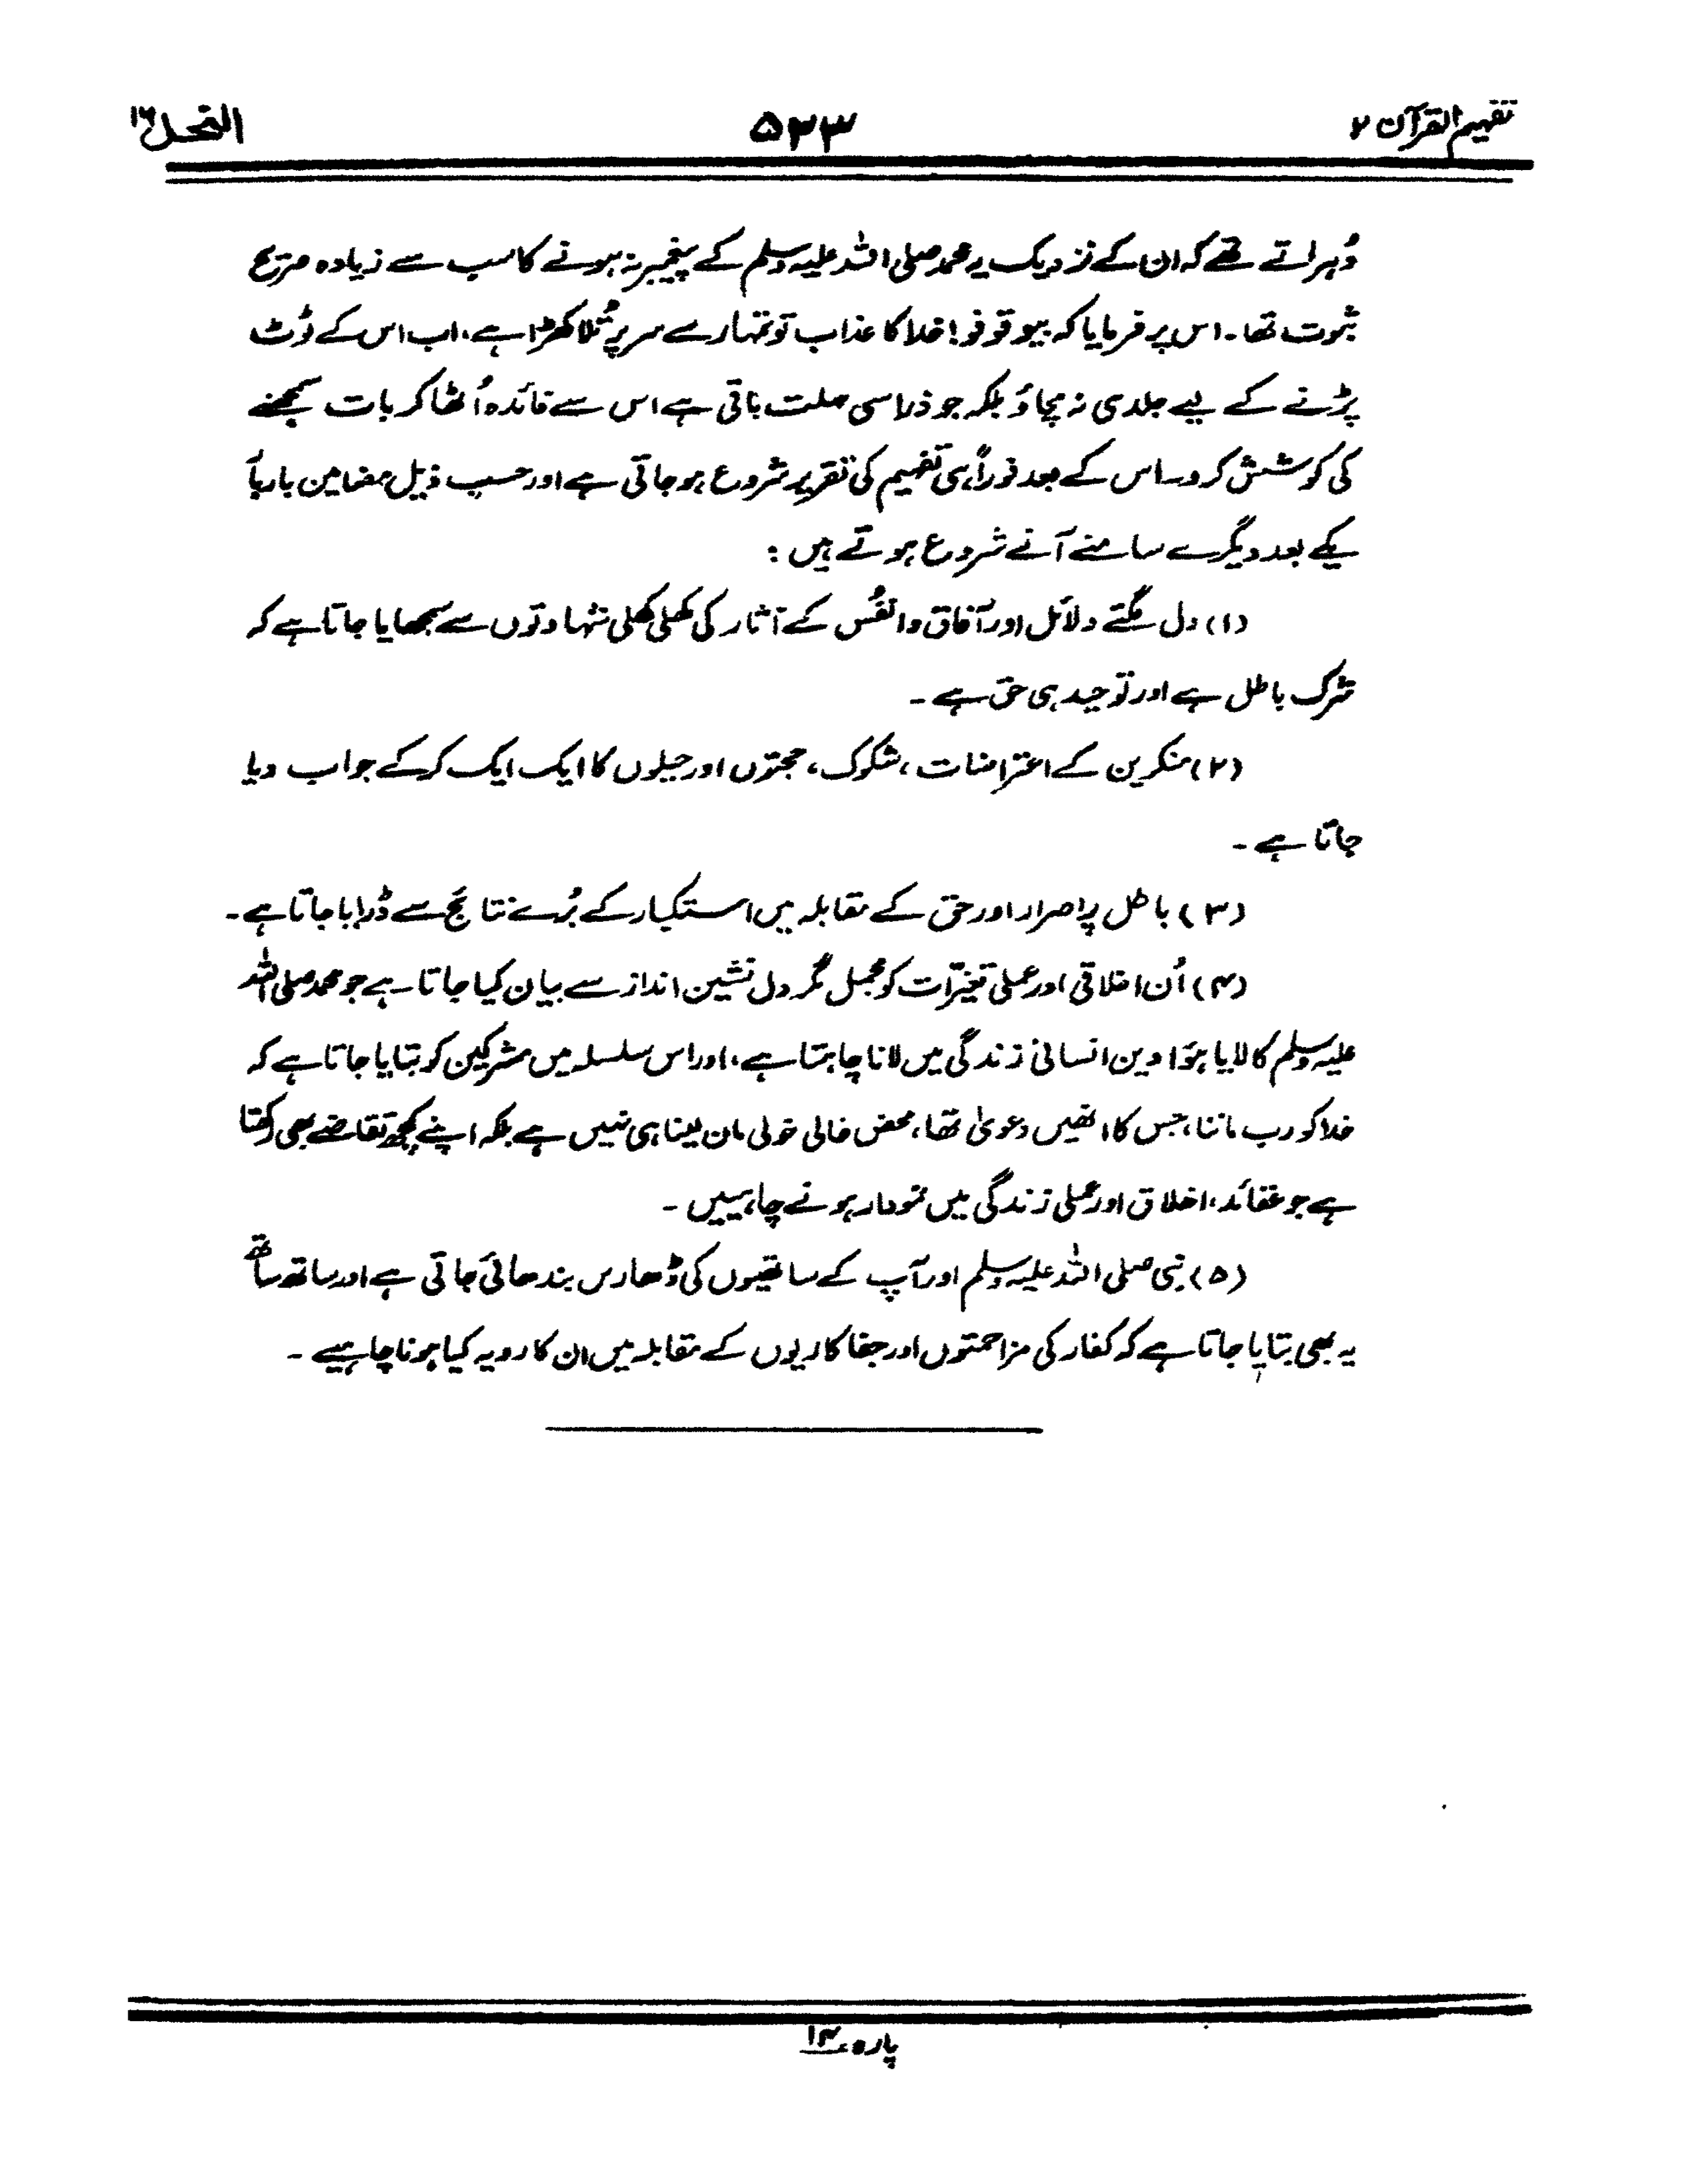 تفہیم القرآن ۲
۵۲۳
النحل ۱۶
دُہراتے تھے کہ ان کے نزدیک یہ محمد صلی اللہ علیہ وسلم کے پیغمبر نہ ہونے کا سب سے زیادہ صریح
ثبوت تھا۔ اس پر فرمایا کہ بیوقوفو! خدا کا عذاب تو تمہارے سر پر تُلا کھڑا ہے، اب اس کے ٹوٹ
پڑنے کے لیے جلدی نہ مچاؤ بلکہ جو ذرا سی مہلت باقی ہے اس سے فائدہ اُٹھا کر بات سمجھنے
کی کوشش کرو۔ اس کے بعد فوراً ہی تفہیم کی تقریر شروع ہو جاتی ہے اور حسب ذیل مضامین بار بار
یکے بعد دیگرے سامنے آنے شروع ہوتے ہیں :
(۱) دل لگتے دلائل اور آفاق و انفُس کے آثار کی کھلی کھلی شہادتوں سے سمجھایا جاتا ہے کہ
شرک باطل ہے اور توحید ہی حق ہے۔
(۲) منکرین کے اعتراضات، شکوک، حجتوں اور حیلوں کا ایک ایک کر کے جواب دیا
جاتا ہے۔
(۳) باطل پر اصرار اور حق کے مقابلہ میں استکبار کے بُرے نتائج سے ڈرایا جاتا ہے۔
(۴) اُن اخلاقی اور عملی تغیّرات کو مجمل مگر دل نشین انداز سے بیان کیا جاتا ہے جو محمد صلی اللہ
علیہ وسلم کا لایا ہوَا دین انسانی زندگی میں لانا چاہتا ہے، اور اس سلسلہ میں مشرکین کو بتایا جاتا ہے کہ
خدا کو رب ماننا، جس کا انھیں دعویٰ تھا، محض خالی خولی مان لینا ہی نہیں ہے بلکہ اپنے کچھ تقاضے بھی رکھتا
ہے جو عقائد، اخلاق اور عملی زندگی میں نمودار ہونے چاہییں۔
(۵) نبی صلی اللہ علیہ وسلم اور آپ کے ساتھیوں کی ڈھارس بندھائی جاتی ہے اور ساتھ ساتھ
یہ بھی بتایا جاتا ہے کہ کفار کی مزاحمتوں اور جفاکاریوں کے مقابلہ میں ان کا رویہ کیا ہونا چاہیے۔
پارہ ۱۴